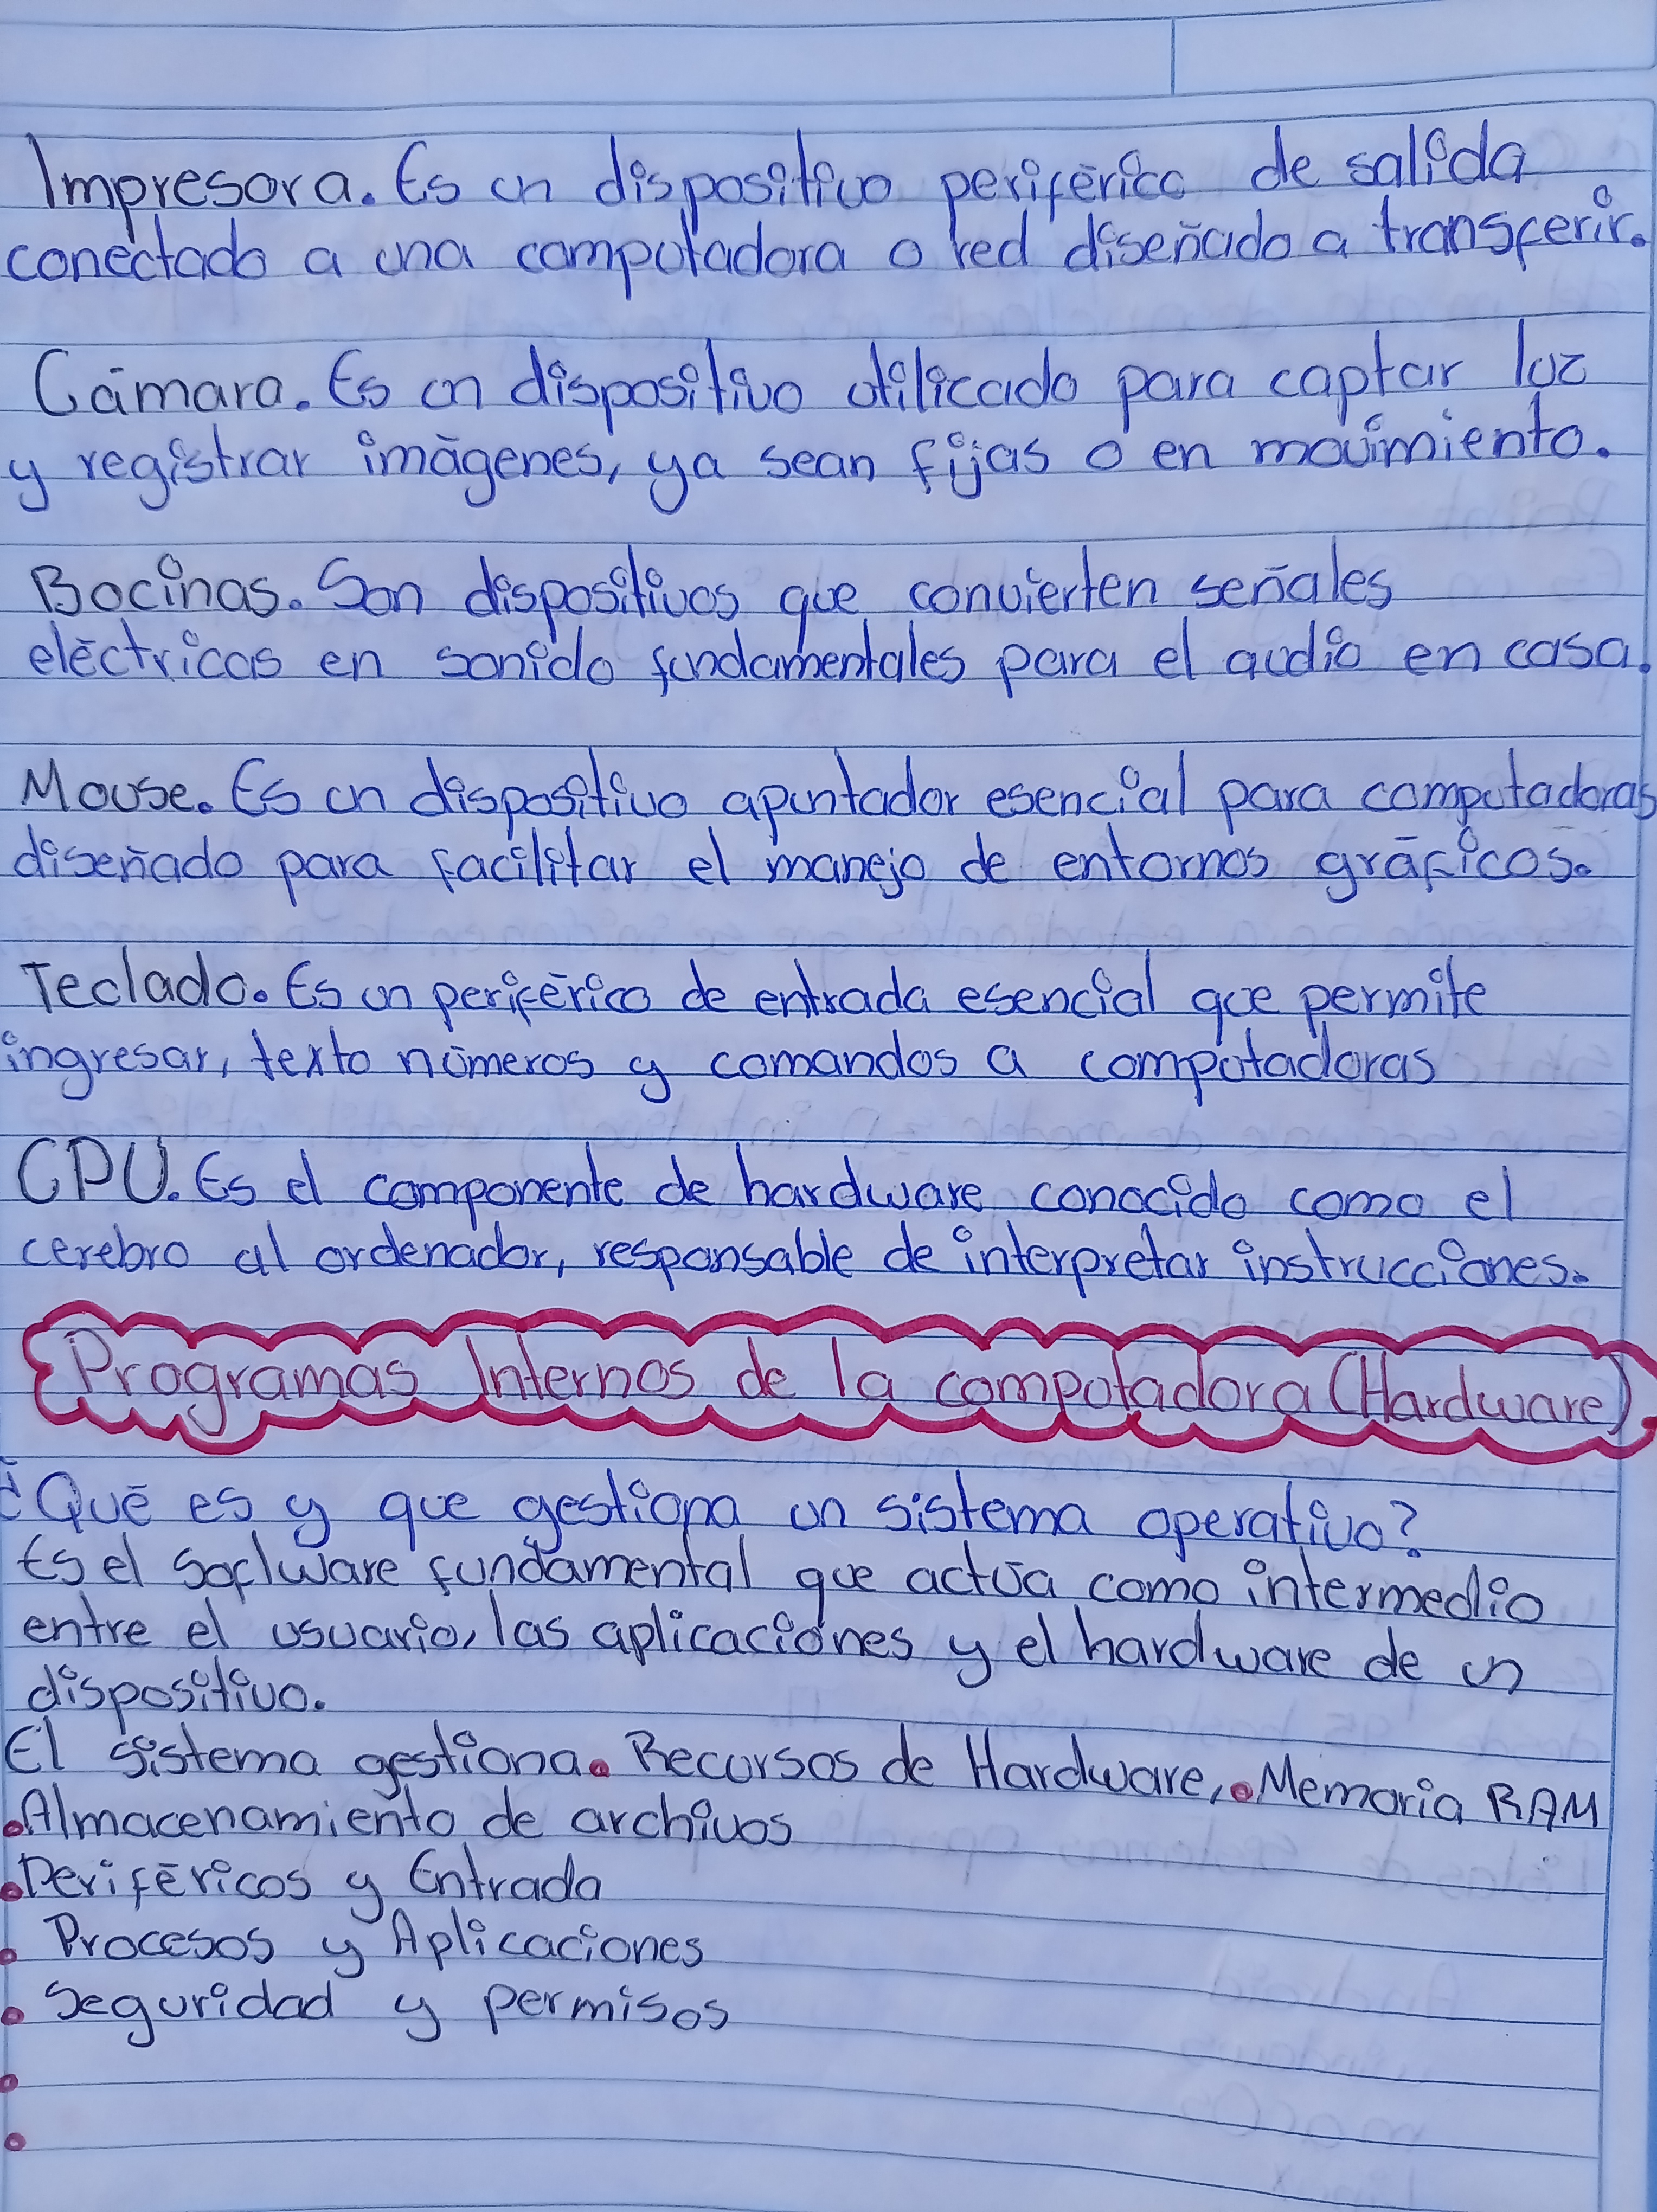 Impresora. Es un dispositivo periférico de salida
conectado a una computadora o red diseñado a transferir.
Cámara. Es un dispositivo utilizado para captar luz
y registrar imágenes, ya sean fijas o en movimiento.
Bocinas. Son dispositivos que convierten señales
eléctricas en sonido fundamentales para el audio en casa.
Mouse. Es un dispositivo apuntador esencial para computadoras
diseñado para facilitar el manejo de entornos gráficos.
Teclado. Es un periférico de entrada esencial que permite
ingresar, texto números y comandos a computadoras
CPU. Es el componente de hardware conocido como el
cerebro al ordenador, responsable de interpretar instrucciones.
Programas Internos de la computadora (Hardware)
¿Qué es y que gestiona un sistema operativo?
Es el Soflware fundamental que actúa como intermedio
entre el usuario, las aplicaciones y el hardware de un
dispositivo.
El sistema gestiona. Recursos de Hardware, • Memoria RAM
• Almacenamiento de archivos
• Periféricos y Entrada
• Procesos y Aplicaciones
• Seguridad y permisos
•
•